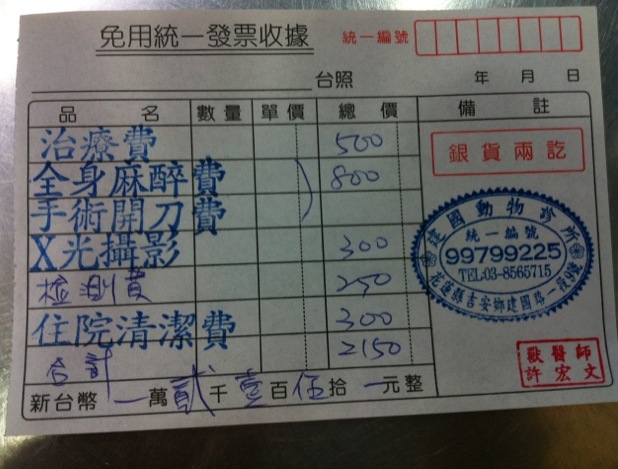 免用統一發票收據
統一編號
台照 年 月 日
品 名 數量 單價 總 價 備 註
治療費 500
全身麻醉費 800
手術開刀費
X光攝影 300
檢測費 250
住院清潔費 300
合計 2150
新台幣 一萬貳千壹百伍拾 一元整
銀貨兩訖
建國動物診所
統一編號
99799225
TEL:03-8565715
花蓮縣吉安鄉建國路一段9號
獸醫師
許宏文